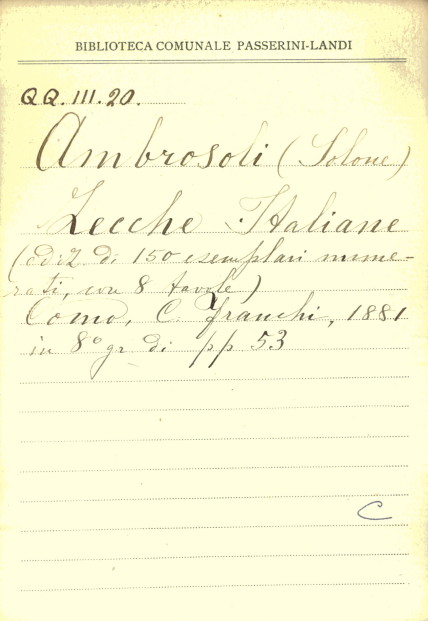 BIBLIOTECA COMUNALE PASSERINI-LANDI
QQ. III. 20.
Ambrosoli (Solone)
Zecche Italiane
(ediz. di 150 esemplari nume-
rati, con 8 tavole)
Como, C. Franchi, 1881
in 8° gr di pp 53
C